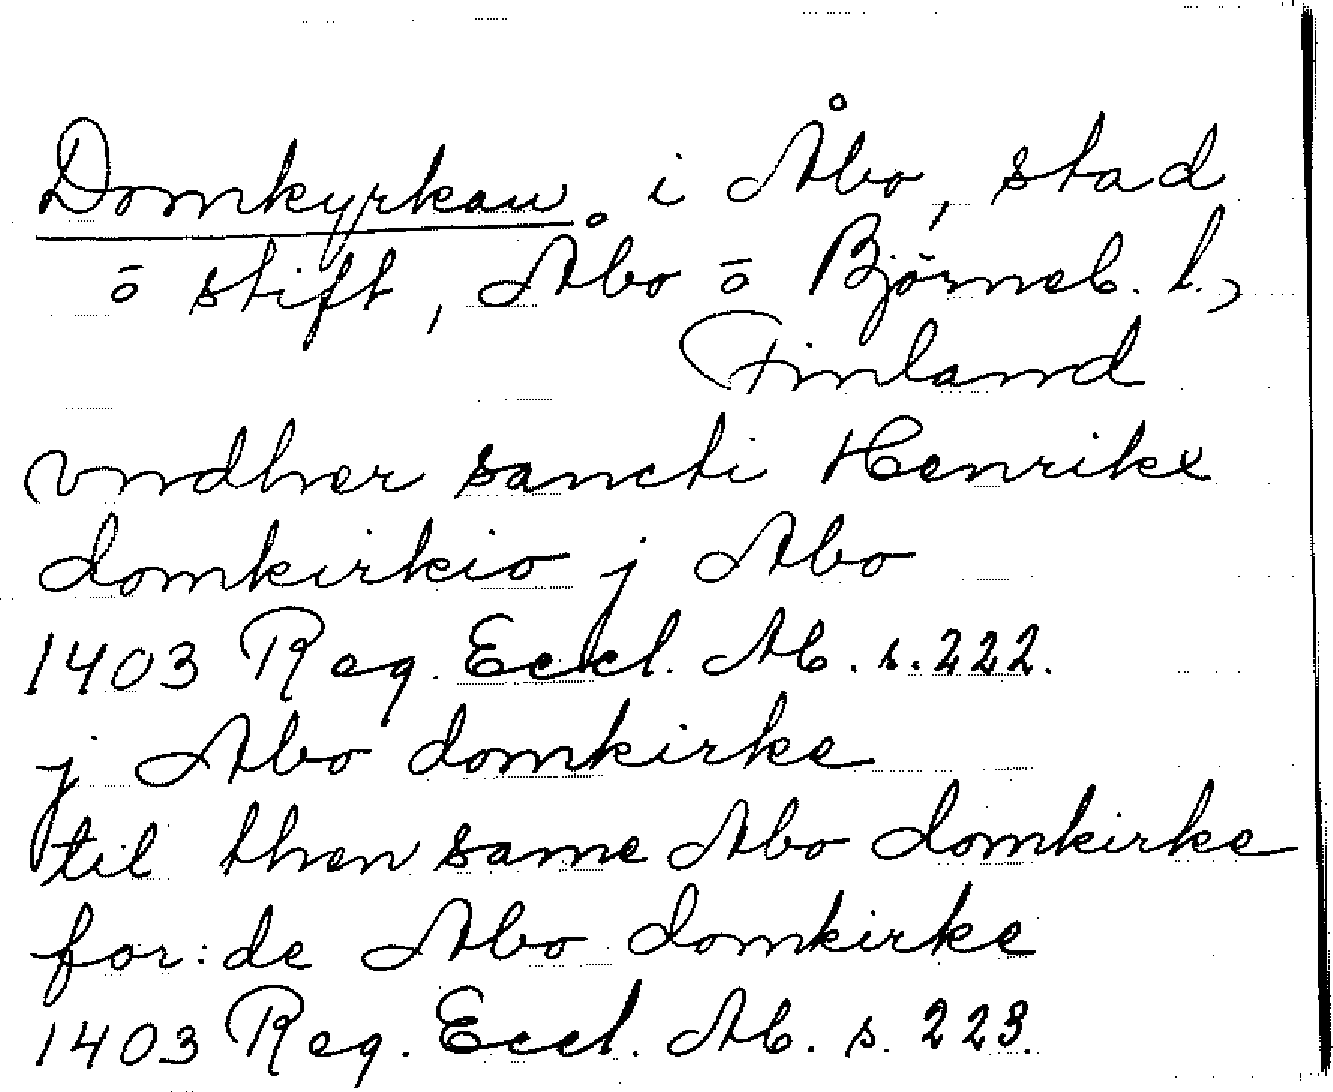 Domkyrkan i Åbo, stad
ō stift, Åbo ō Björneb. l.,
Finland
vndher sancti Henrikx
domkirkio j Abo
1403 Reg. Eccl. Ab. s. 222.
j Abo domkirke
til then same Abo domkirke
for:de Abo domkirke
1403 Reg. Eccl. Ab. s. 223.